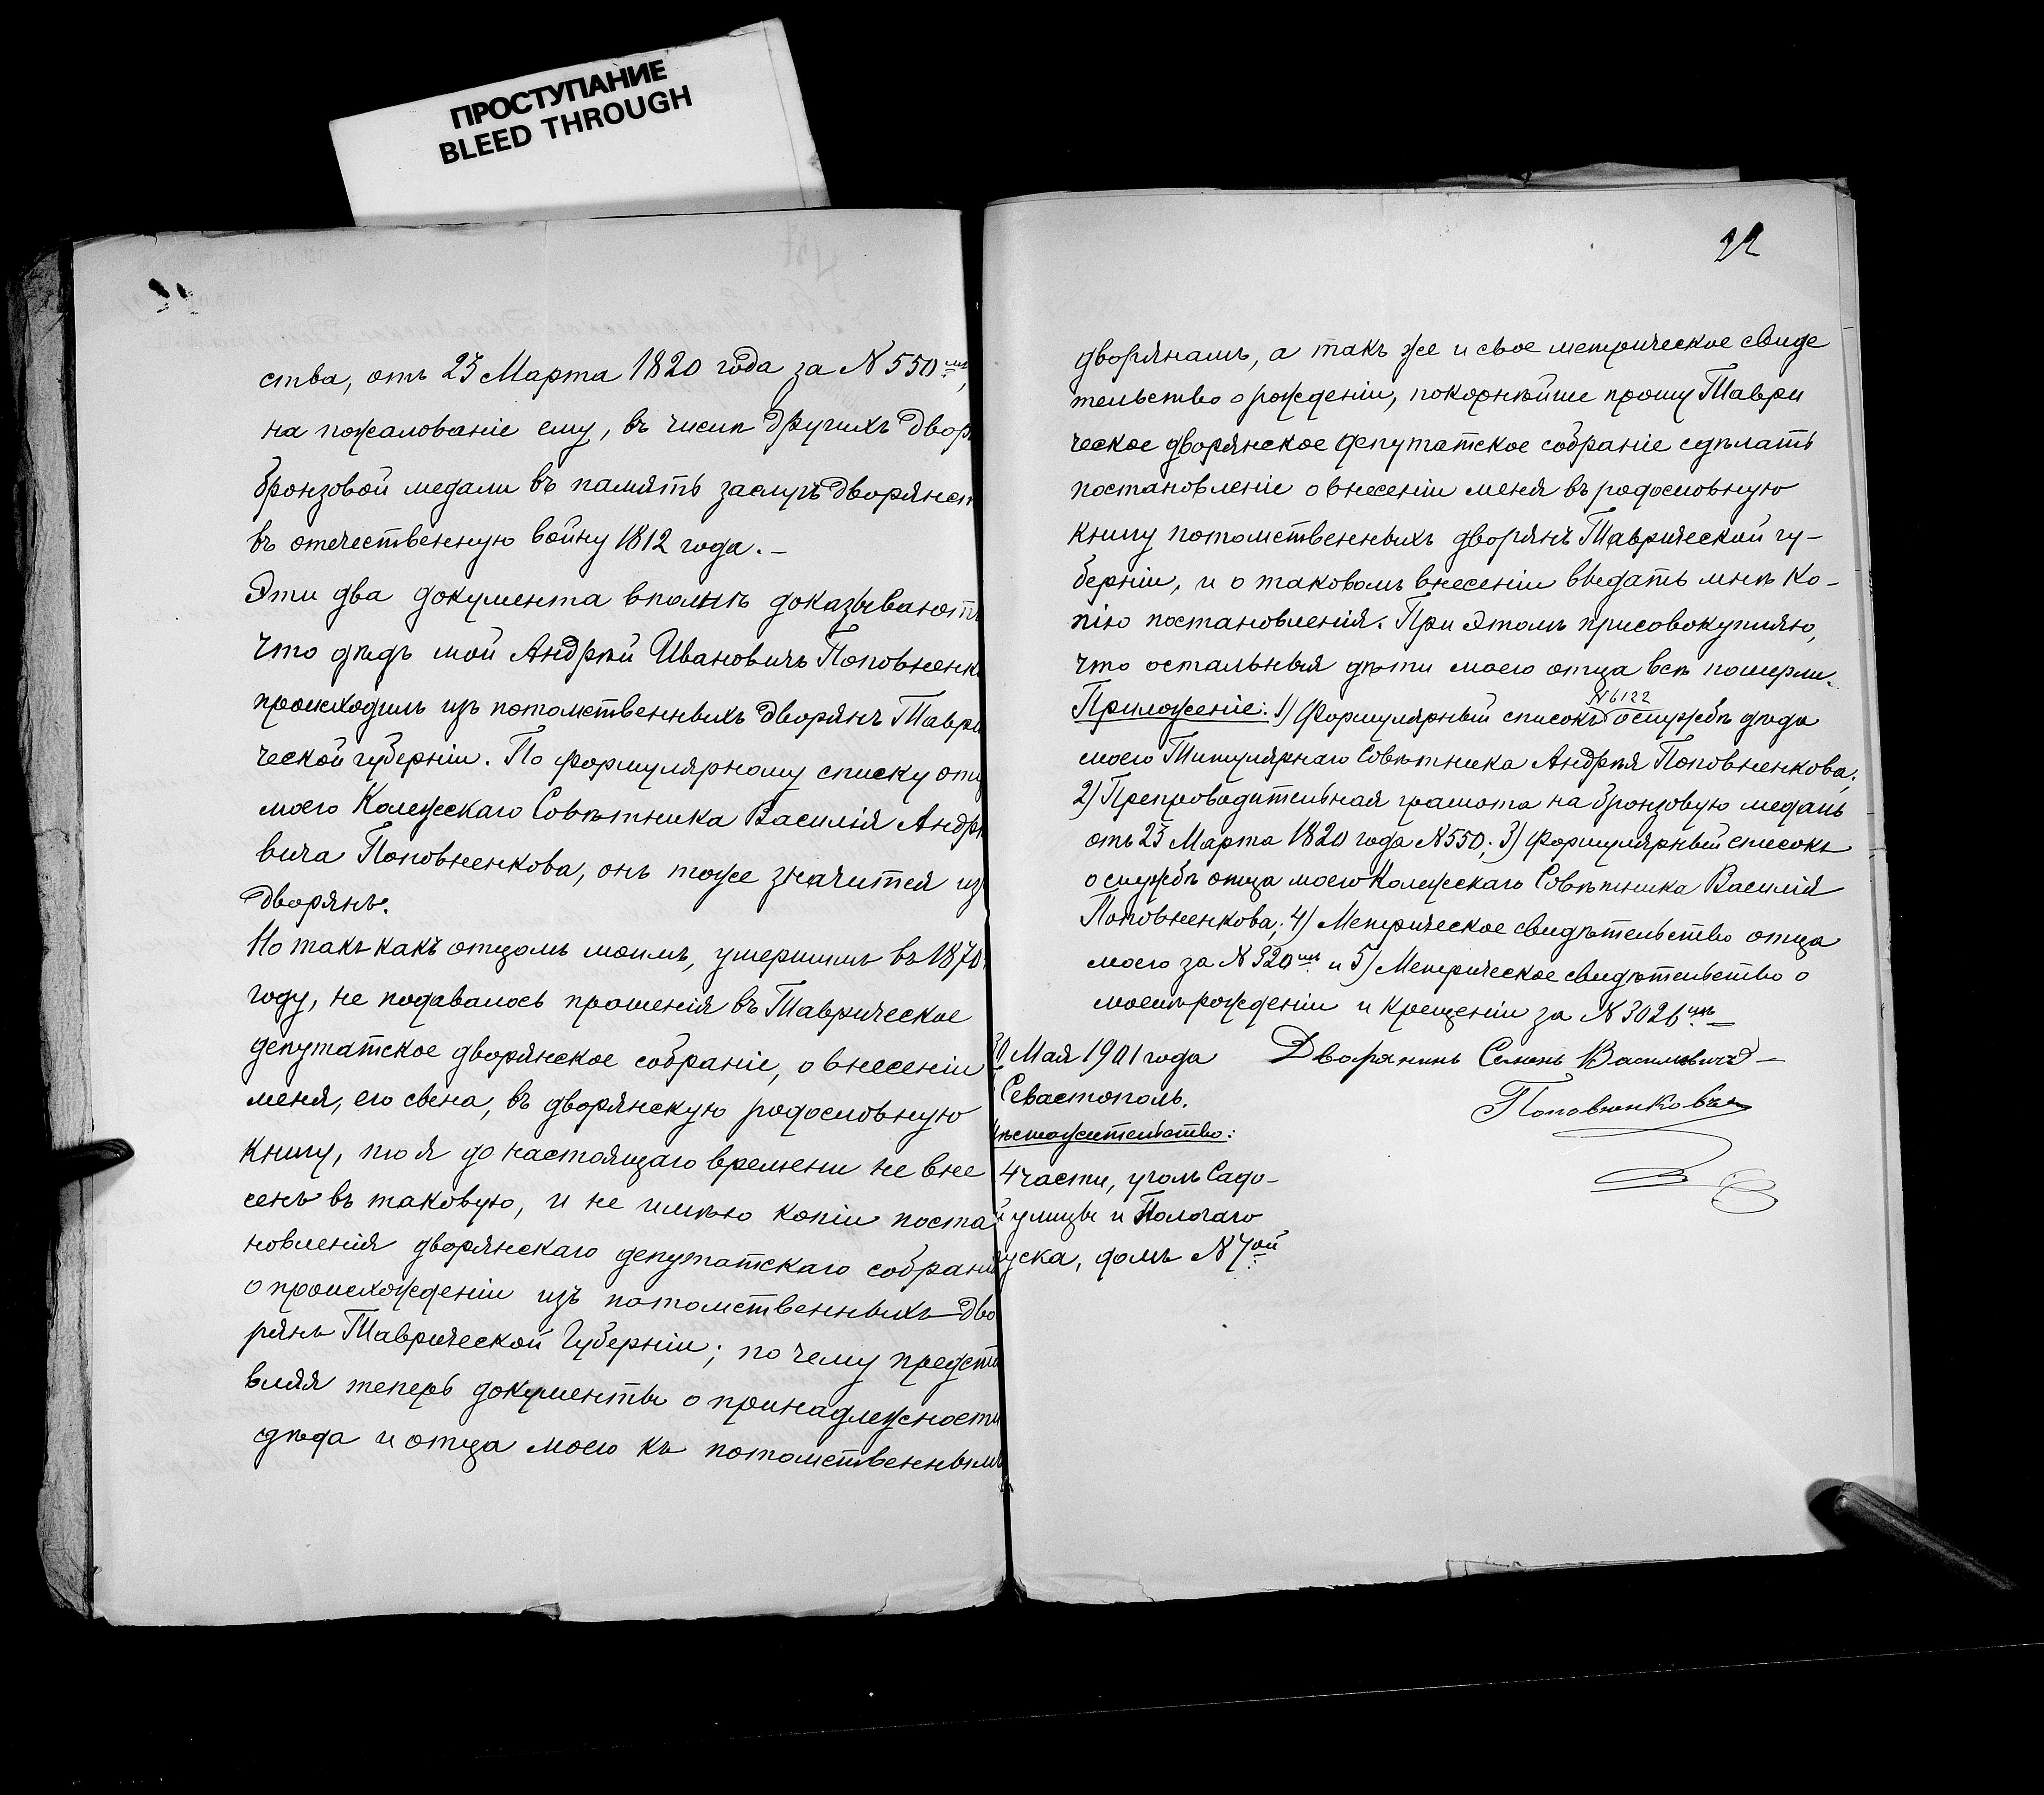 ПРОСТУПАНИЕ
BLEED THROUGH
ства, отъ 23 Марта 1820 года за N 550мъ,
на пожалованіе ему, въ числѣ другихъ двор
бронзовой медали въ память заслугъ дворянст
въ отечественную войну 1812 года. –
Эти два документа вполнѣ доказываютъ
что дѣдъ мой Андрѣй Ивановичъ Поповненк
происходилъ изъ потомственныхъ дворянъ Таври
ческой губерніи. По формулярному списку отц
моего Колежскаго Совѣтника Василія Андрѣ
вича Поповненкова, онъ тоже значится из
дворянъ.
Но такъ какъ отцомъ моимъ, умершимъ въ 1870
году, не подавалось прошенія въ Таврическое
депутатское дворянское собраніе, о внесеніи
меня, его сына, въ дворянскую родословную
книгу, то я до настоящаго времени не вне
сенъ въ таковую, и не имѣю копіи поста
новленія дворянскаго депутатскаго собрані
о происхожденіи изъ потомственныхъ дво
рянъ Таврической Губерніи; по чему предста
вляя теперь документы о принадлежности
дѣда и отца моего къ потомственнымъ
22
дворянамъ, а такъ же и свое метрическое свиде
тельство о рожденіи, покорнѣйше прошу Таври
ческое дворянское депутатское собраніе сдѣлать
постановленіе о внесеніи меня въ родословную
книгу потомственныхъ дворянъ Таврической гу-
берніи, и о таковомъ внесеніи выдать мнѣ ко-
пію постановленія. При этомъ присовокупляю,
что остальныя дѣти моего отца всѣ померли.
N 6122
Приложеніе: 1) Формулярный списокъ о службѣ дѣда
моего Титулярнаго Совѣтника Андрѣя Поповненкова;
2) Препроводительная грамота на бронзовую медаль
отъ 23 Марта 1820 года N 550; 3) Формулярный списокъ
о службѣ отца моего Колежскаго Совѣтника Василія
Поповненкова; 4) Метрическое свидѣтельство отца
моего за N 320мъ и 5) Метрическое свидѣтельство о
моемъ рожденіи и крещеніи за N 3026мъ
30 Мая 1901 года Дворянинъ Семенъ Васильевичъ –
Севастополь. Поповненковъ
ѣстожительство:
4 части, уголъ Садо-
й улицы и Пологаго
уска, домъ N 7ой